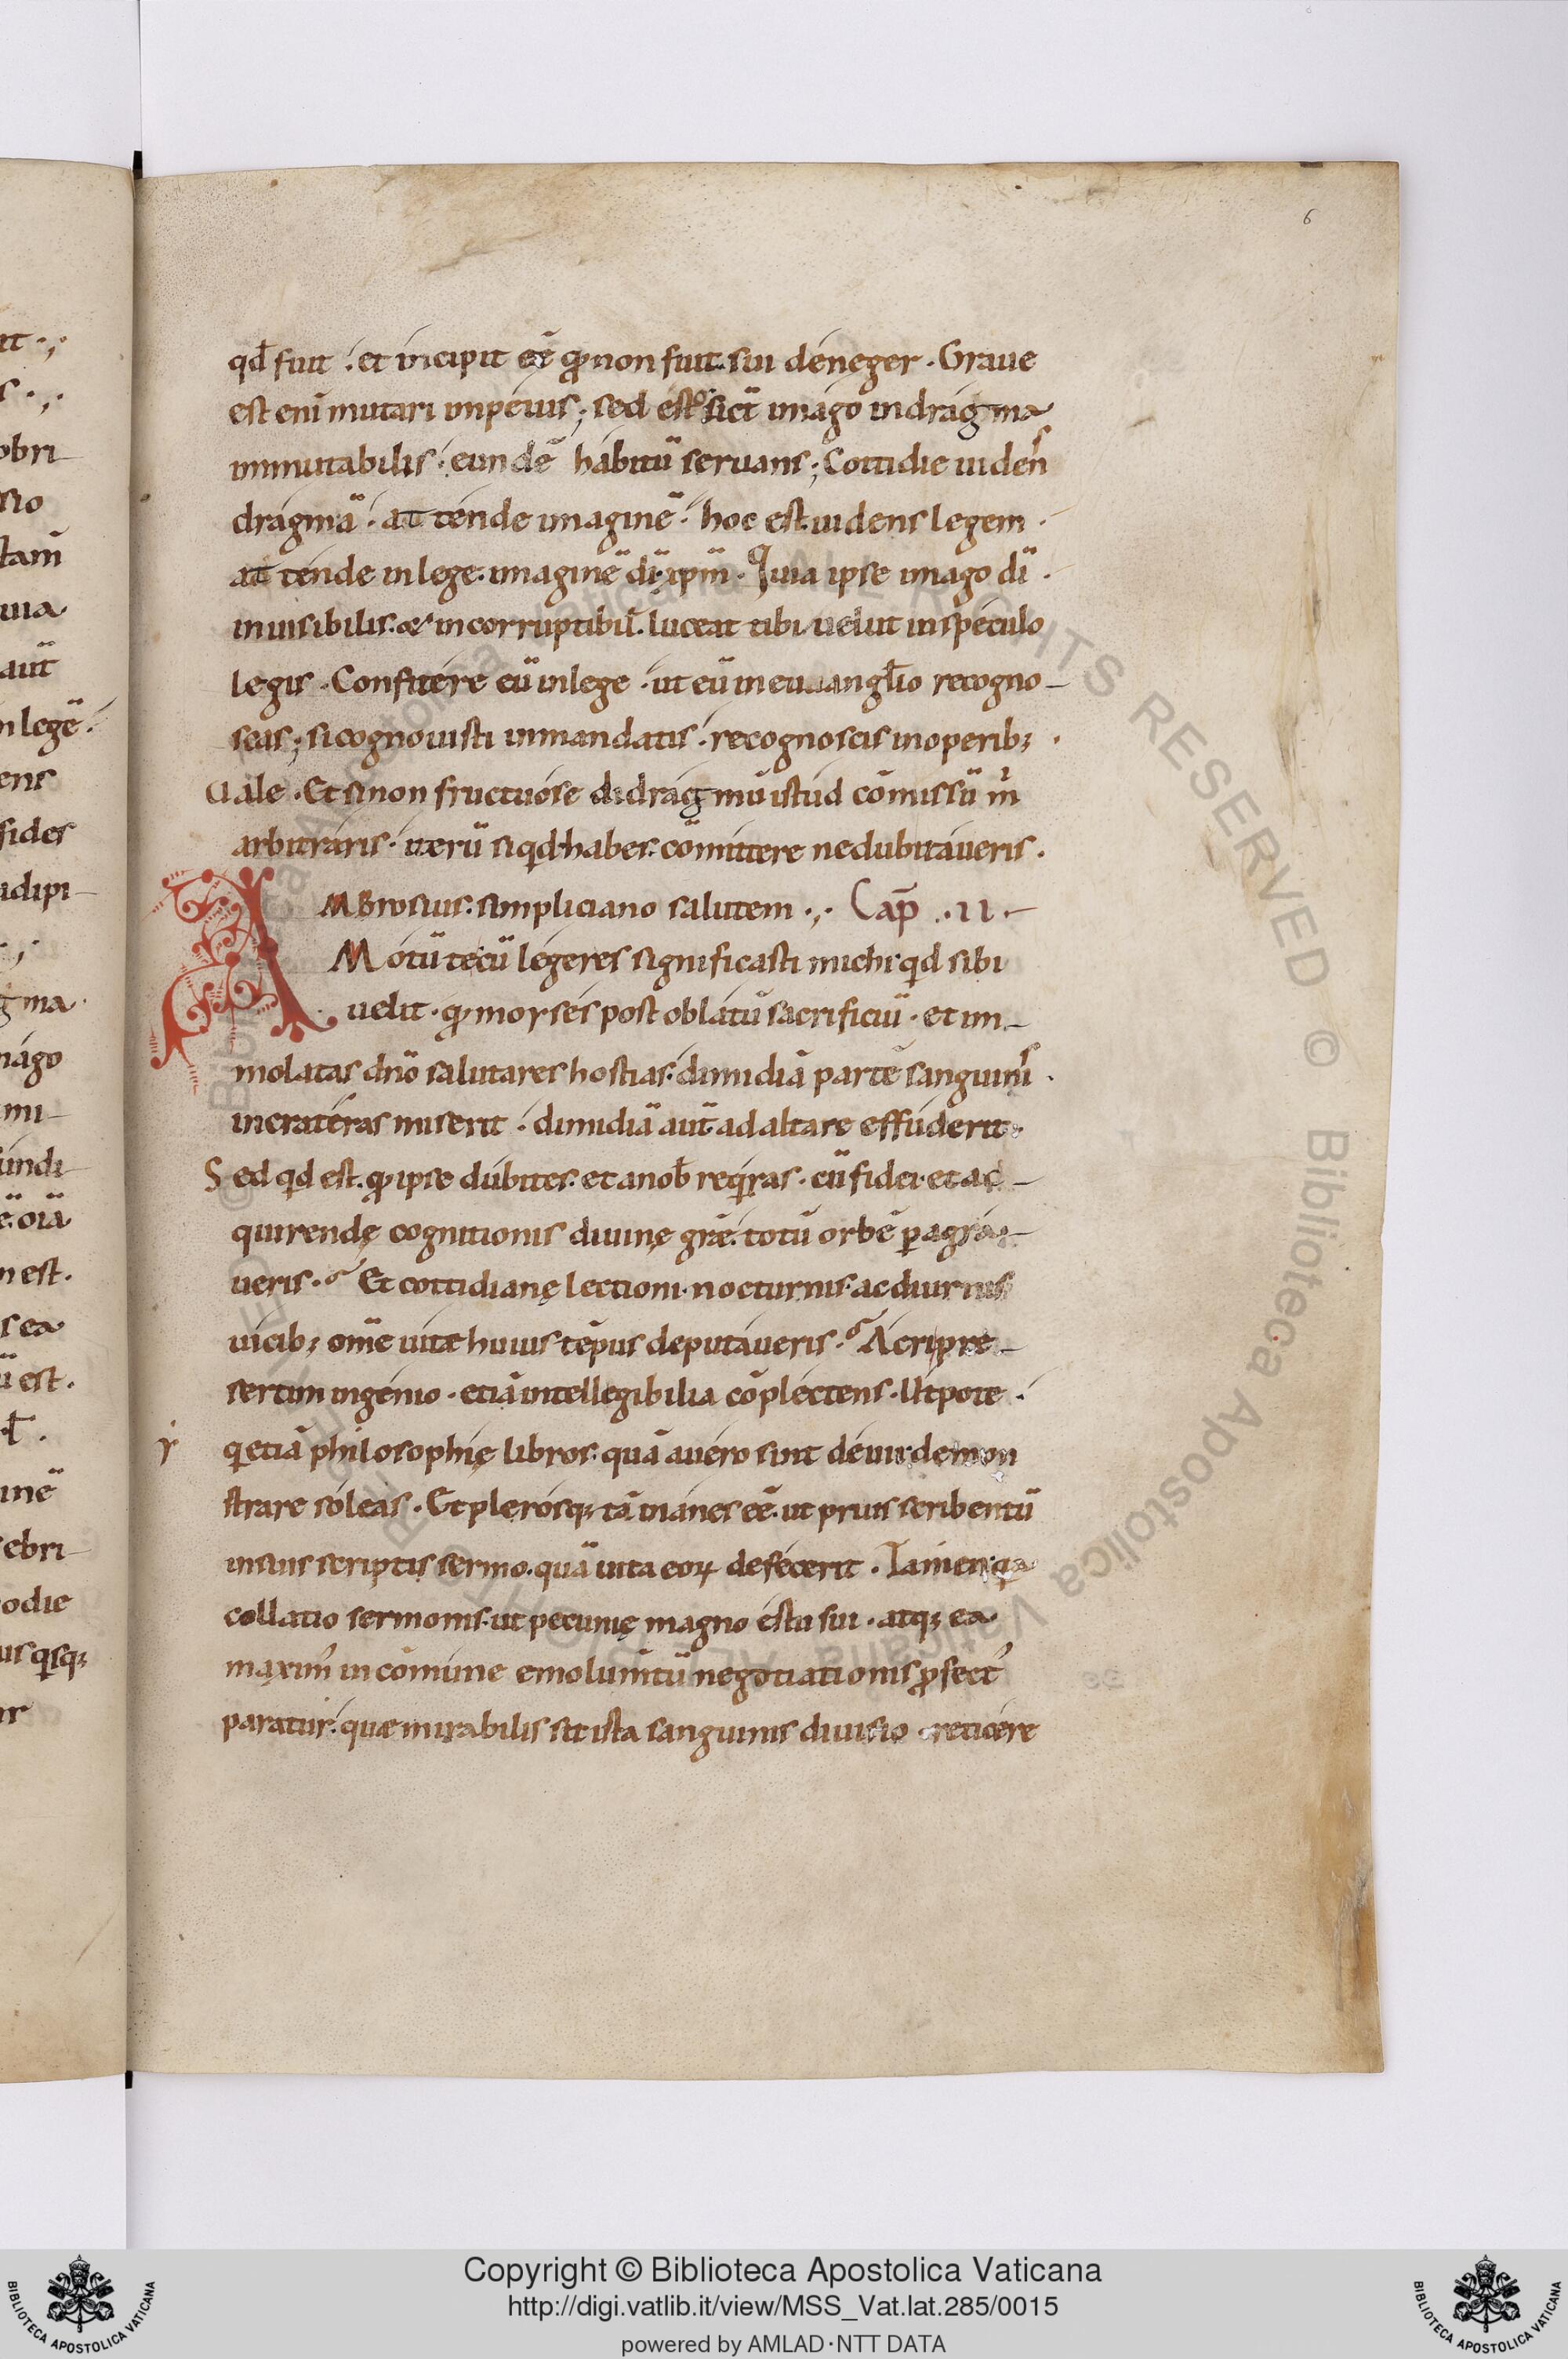 6
qd̄ fuit · et incipit eē qđ non fuit sui deneger · Graue
est eni mutari inpeius ; sed esto sicut̄ imago indragma
inmutabilis · eundē habitū seruans ; Cottidie uidens
dragmā · attende imaginē · hoc est uidens legem ·
attende in lege imaginē dī xp̄m · Quia ipse imago dī ·
inuisibilis & incorruptibił · luceat tibi uelut inspeculo
legis · Confitere eū inlege · ut eū in euuangl̄io recogno-
scas ; si cognouisti inmandatis · recognoscis inoperib; ·
Uale · Et si non fructuose didragmū istud cōmissū m̄
arbitraris · iterū siqd habes cōmittere nedubitaueris ·
AMBrosius simpliciano salutem ·,· Cap̄ · II ·
Motū tecū legeres significasti michi qd sibi
uelit · qđ moyses post oblatū sacrificiū · et im-
molatas dn̄o salutares hostias dimidiā partē sanguinis ·
incrateras miserit · dimidiā aut̄ ad altare effuderit ·
Sed qd est qđ ipse dubites et anob̄ reqiras · cū fidei et ac-
quirendę cognitionis diuinę grae totū orbē peragra-
ueris · Et cottidianę lectioni nocturnis ac diurnis
uicib; om̄e uitæ huius tēpus deputaueris · Acri pre-
sertim ingenio · etiā intellegibilia cōplectens · Utpote ·
r qi etiā philosophię libros quā auero sint deuii demon
strare soleas · Et plerosq; tā inanes eē ut prius scribentū
insuis scriptis sermo quā uita eoꝝ defecerit · Tamen qia
collatio sermonis ut pecunię magno est usui · atq; ea
maxim̄ in cōmune emolumtū negotiationis ꝓfect'
paratur quæ mirabilis sit ista sanguinis diuisio reticere
ut ·,·
s ·,·
obri-
sio
tam̄
uia
aut̄
in legē ·
ens
fides
adipi-
gma ·
mago
mi-
undi-
oīa
n est ·
s ea
ū est ·
inē
ebri-
odie
us qisq;
ur
Copyright © Biblioteca Apostolica Vaticana
http://digi.vatlib.it/view/MSS_Vat.lat.285/0015
powered by AMLAD·NTT DATA
BIBLIOTECA APOSTOLICA VATICANA
BIBLIOTECA APOSTOLICA VATICANA